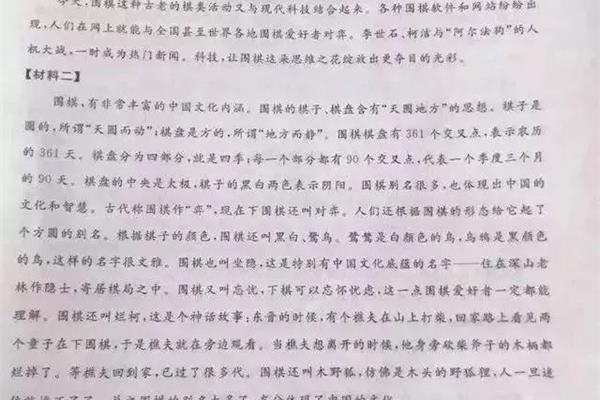 今天,围棋这种古老的棋类活动又与现代科技结合起来。各种围棋软件和网站纷纷出
现,人们在网上就能与全国甚至世界各地围棋爱好者对弈。李世石、柯洁与“阿尔法狗”的人
机大战,一时成为热门新闻。科技,让围棋这朵思维之花绽放出更夺目的光彩。
【材料二】
围棋,有非常丰富的中国文化内涵。围棋的棋子、棋盘含有“天圆地方”的思想。棋子是
圆的,所谓“天圆而动”;棋盘是方的,所谓“地方而静”。围棋棋盘有361个交叉点,表示农历
的361天。棋盘分为四部分,就是四季;每一个部分都有90个交叉点,代表一个季度三个月
的90天。棋盘的中央是太极,棋子的黑白两色表示阴阳。围棋别名很多,也体现出中国的
文化和智慧。古代称围棋作“弈”,现在下围棋还叫对弈。人们还根据围棋的形态给它起了
个方圆的别名。根据棋子的颜色,围棋还叫黑白、鹭乌。鹭鸶是白颜色的鸟,乌鸦是黑颜色
的鸟,这样的名字很文雅。围棋也叫坐隐,这是特别有中国文化底蕴的名字——住在深山老
林作隐士,寄居棋局之中。围棋又叫忘忧,下棋可以忘怀忧虑,这一点围棋爱好者一定都能
理解。围棋还叫烂柯,这是个神话故事:东晋的时候,有个樵夫在山上打柴,回家路上看见两
个童子在下围棋,于是樵夫就在旁边观看。当樵夫想离开的时候,他身旁砍柴斧子的木柄都
烂掉了。等樵夫回到家,已过了很多代。围棋还叫木野狐,仿佛是木头的野狐狸,人一旦迷
围棋的别名太多了,充分体现了中国的文化